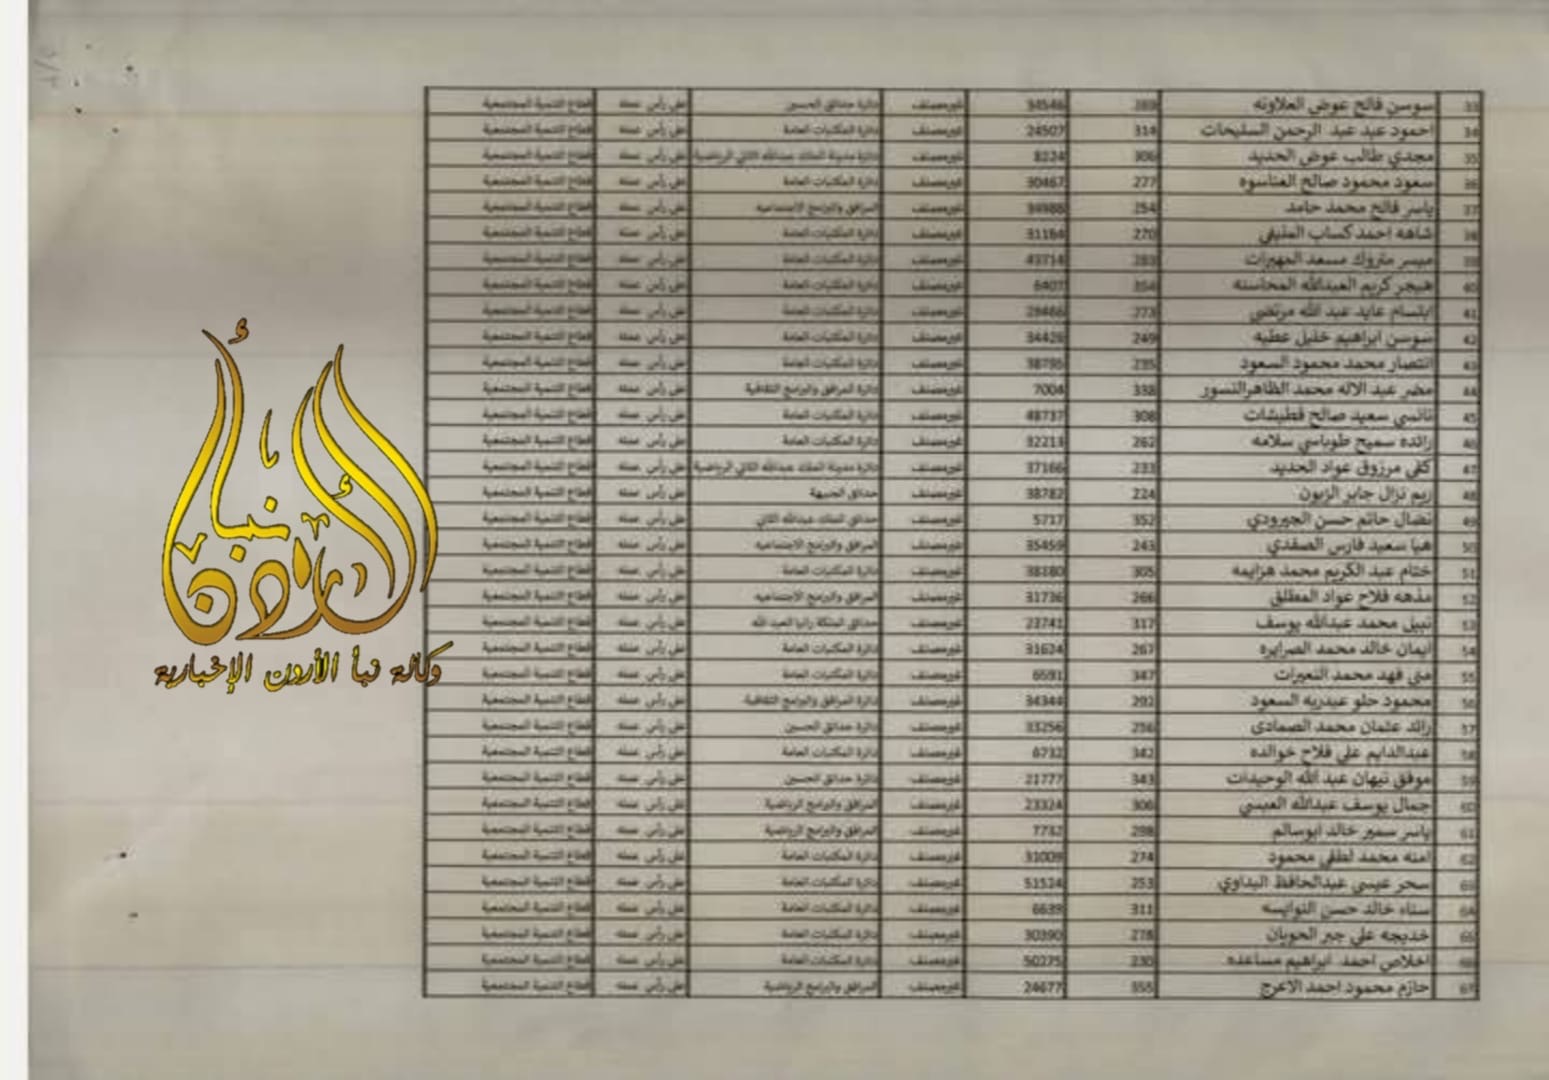 33 سوسن فالح عوض العلاونه 289 34546 غير مصنف دائرة حدائق الحسين على رأس عمله قطاع التنمية المجتمعية
34 احمود عيد عبد الرحمن السليحات 314 24507 غير مصنف دائرة المكتبات العامة على رأس عمله قطاع التنمية المجتمعية
35 مجدي طالب عوض الحديد 306 8224 غير مصنف دائرة مدينة الملك عبدالله الثاني الرياضية على رأس عمله قطاع التنمية المجتمعية
36 سعود محمود صالح المناسوه 277 30467 غير مصنف دائرة المكتبات العامة على رأس عمله قطاع التنمية المجتمعية
37 ياسر فالح محمد حامد 254 غير مصنف المرافق والبرامج الاجتماعيه على رأس عمله قطاع التنمية المجتمعية
38 شاهه احمد كساب المنيفي 270 31184 غير مصنف دائرة المكتبات العامة على رأس عمله قطاع التنمية المجتمعية
39 ميسر متروك مسعد المهيرات 283 43714 غير مصنف دائرة المكتبات العامة على رأس عمله قطاع التنمية المجتمعية
40 هيجر كريم العبدالله المحاسنه 354 6407 غير مصنف دائرة المكتبات العامة على رأس عمله قطاع التنمية المجتمعية
41 ابتسام عايد عبد الله مرتضى 273 28466 غير مصنف دائرة المكتبات العامة على رأس عمله قطاع التنمية المجتمعية
42 سوسن ابراهيم خليل عطيه 249 34426 غير مصنف دائرة المكتبات العامة على رأس عمله قطاع التنمية المجتمعية
43 انتصار محمد محمود السعود 235 38795 غير مصنف دائرة المكتبات العامة على رأس عمله قطاع التنمية المجتمعية
44 مضر عبد الاله محمد الظاهرالنسور 338 7004 غير مصنف دائرة المرافق والبرامج الثقافية على رأس عمله قطاع التنمية المجتمعية
45 نانسي سعيد صالح قطيشات 308 48737 غير مصنف دائرة المكتبات العامة على رأس عمله قطاع التنمية المجتمعية
46 رائده سميح طوباسي سلامه 262 32213 غير مصنف دائرة المكتبات العامة على رأس عمله قطاع التنمية المجتمعية
47 كفى مرزوق عواد الحديد 233 37166 غير مصنف دائرة مدينة الملك عبدالله الثاني الرياضية على رأس عمله قطاع التنمية المجتمعية
48 ريم نزال جابر الزبون 224 38782 غير مصنف حدائق الجبيهة على رأس عمله قطاع التنمية المجتمعية
49 نضال حاتم حسن الجيرودي 352 5717 غير مصنف حدائق الملك عبدالله الثاني على رأس عمله قطاع التنمية المجتمعية
50 هيا سعيد فارس الصفدي 243 35459 غير مصنف المرافق والبرامج الاجتماعيه على رأس عمله قطاع التنمية المجتمعية
51 ختام عبد الكريم محمد هزايمه 305 38180 غير مصنف دائرة المكتبات العامة على رأس عمله قطاع التنمية المجتمعية
52 مذهه فلاح عواد المطلق 266 31736 غير مصنف المرافق والبرامج الاجتماعيه على رأس عمله قطاع التنمية المجتمعية
53 نبيل محمد عبدالله يوسف 317 23741 غير مصنف حدائق الملكة رانيا العبد الله على رأس عمله قطاع التنمية المجتمعية
54 ايمان خالد محمد الصرايره 267 31624 غير مصنف دائرة المكتبات العامة على رأس عمله قطاع التنمية المجتمعية
55 منى فهد محمد النعيرات 347 6591 غير مصنف دائرة المكتبات العامة على رأس عمله قطاع التنمية المجتمعية
56 محمود حلو عبدربه السعود 292 34344 غير مصنف دائرة المرافق والبرامج الثقافية على رأس عمله قطاع التنمية المجتمعية
57 رائد عثمان محمد الصمادى 256 33256 غير مصنف دائرة حدائق الحسين على رأس عمله قطاع التنمية المجتمعية
58 عبدالدايم علي فلاح خوالده 342 6732 غير مصنف دائرة المكتبات العامة على رأس عمله قطاع التنمية المجتمعية
59 موفق نبهان عبد الله الوحيدات 343 21777 غير مصنف دائرة حدائق الحسين على رأس عمله قطاع التنمية المجتمعية
60 جمال يوسف عبدالله العبسي 306 23324 غير مصنف المرافق والبرامج الرياضية على رأس عمله قطاع التنمية المجتمعية
61 ياسر سمير خالد ابوسالم 298 7732 غير مصنف المرافق والبرامج الرياضية على رأس عمله قطاع التنمية المجتمعية
62 امنه محمد لطفي محمود 274 31009 غير مصنف دائرة المكتبات العامة على رأس عمله قطاع التنمية المجتمعية
63 سحر عيسى عبدالحافظ البداوي 253 51524 غير مصنف دائرة المكتبات العامة على رأس عمله قطاع التنمية المجتمعية
64 سناء خالد حسن النوايسه 311 6639 غير مصنف دائرة المكتبات العامة على رأس عمله قطاع التنمية المجتمعية
65 خديجه علي جبر الحويان 278 30390 غير مصنف دائرة المكتبات العامة على رأس عمله قطاع التنمية المجتمعية
66 اخلاص احمد ابراهيم مساعده 230 50275 غير مصنف دائرة المكتبات العامة على رأس عمله قطاع التنمية المجتمعية
67 حازم محمود احمد الاعرج 355 24677 غير مصنف المرافق والبرامج الرياضية على رأس عمله قطاع التنمية المجتمعية
نبأ الأردن
وكالة نبأ الأردن الإخبارية